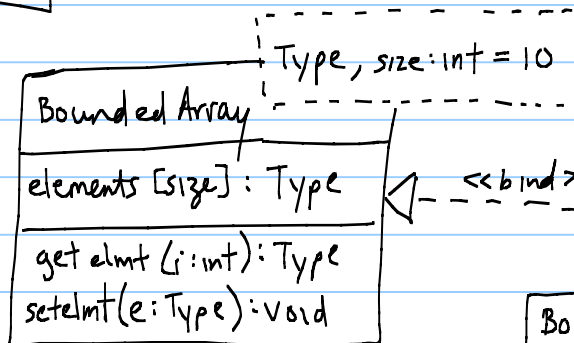 Type, size: int = 10
Bounded Array
elements [size] : Type
<<bind>
get elmt (i: int): Type
setelmt(e: Type): void
Bo